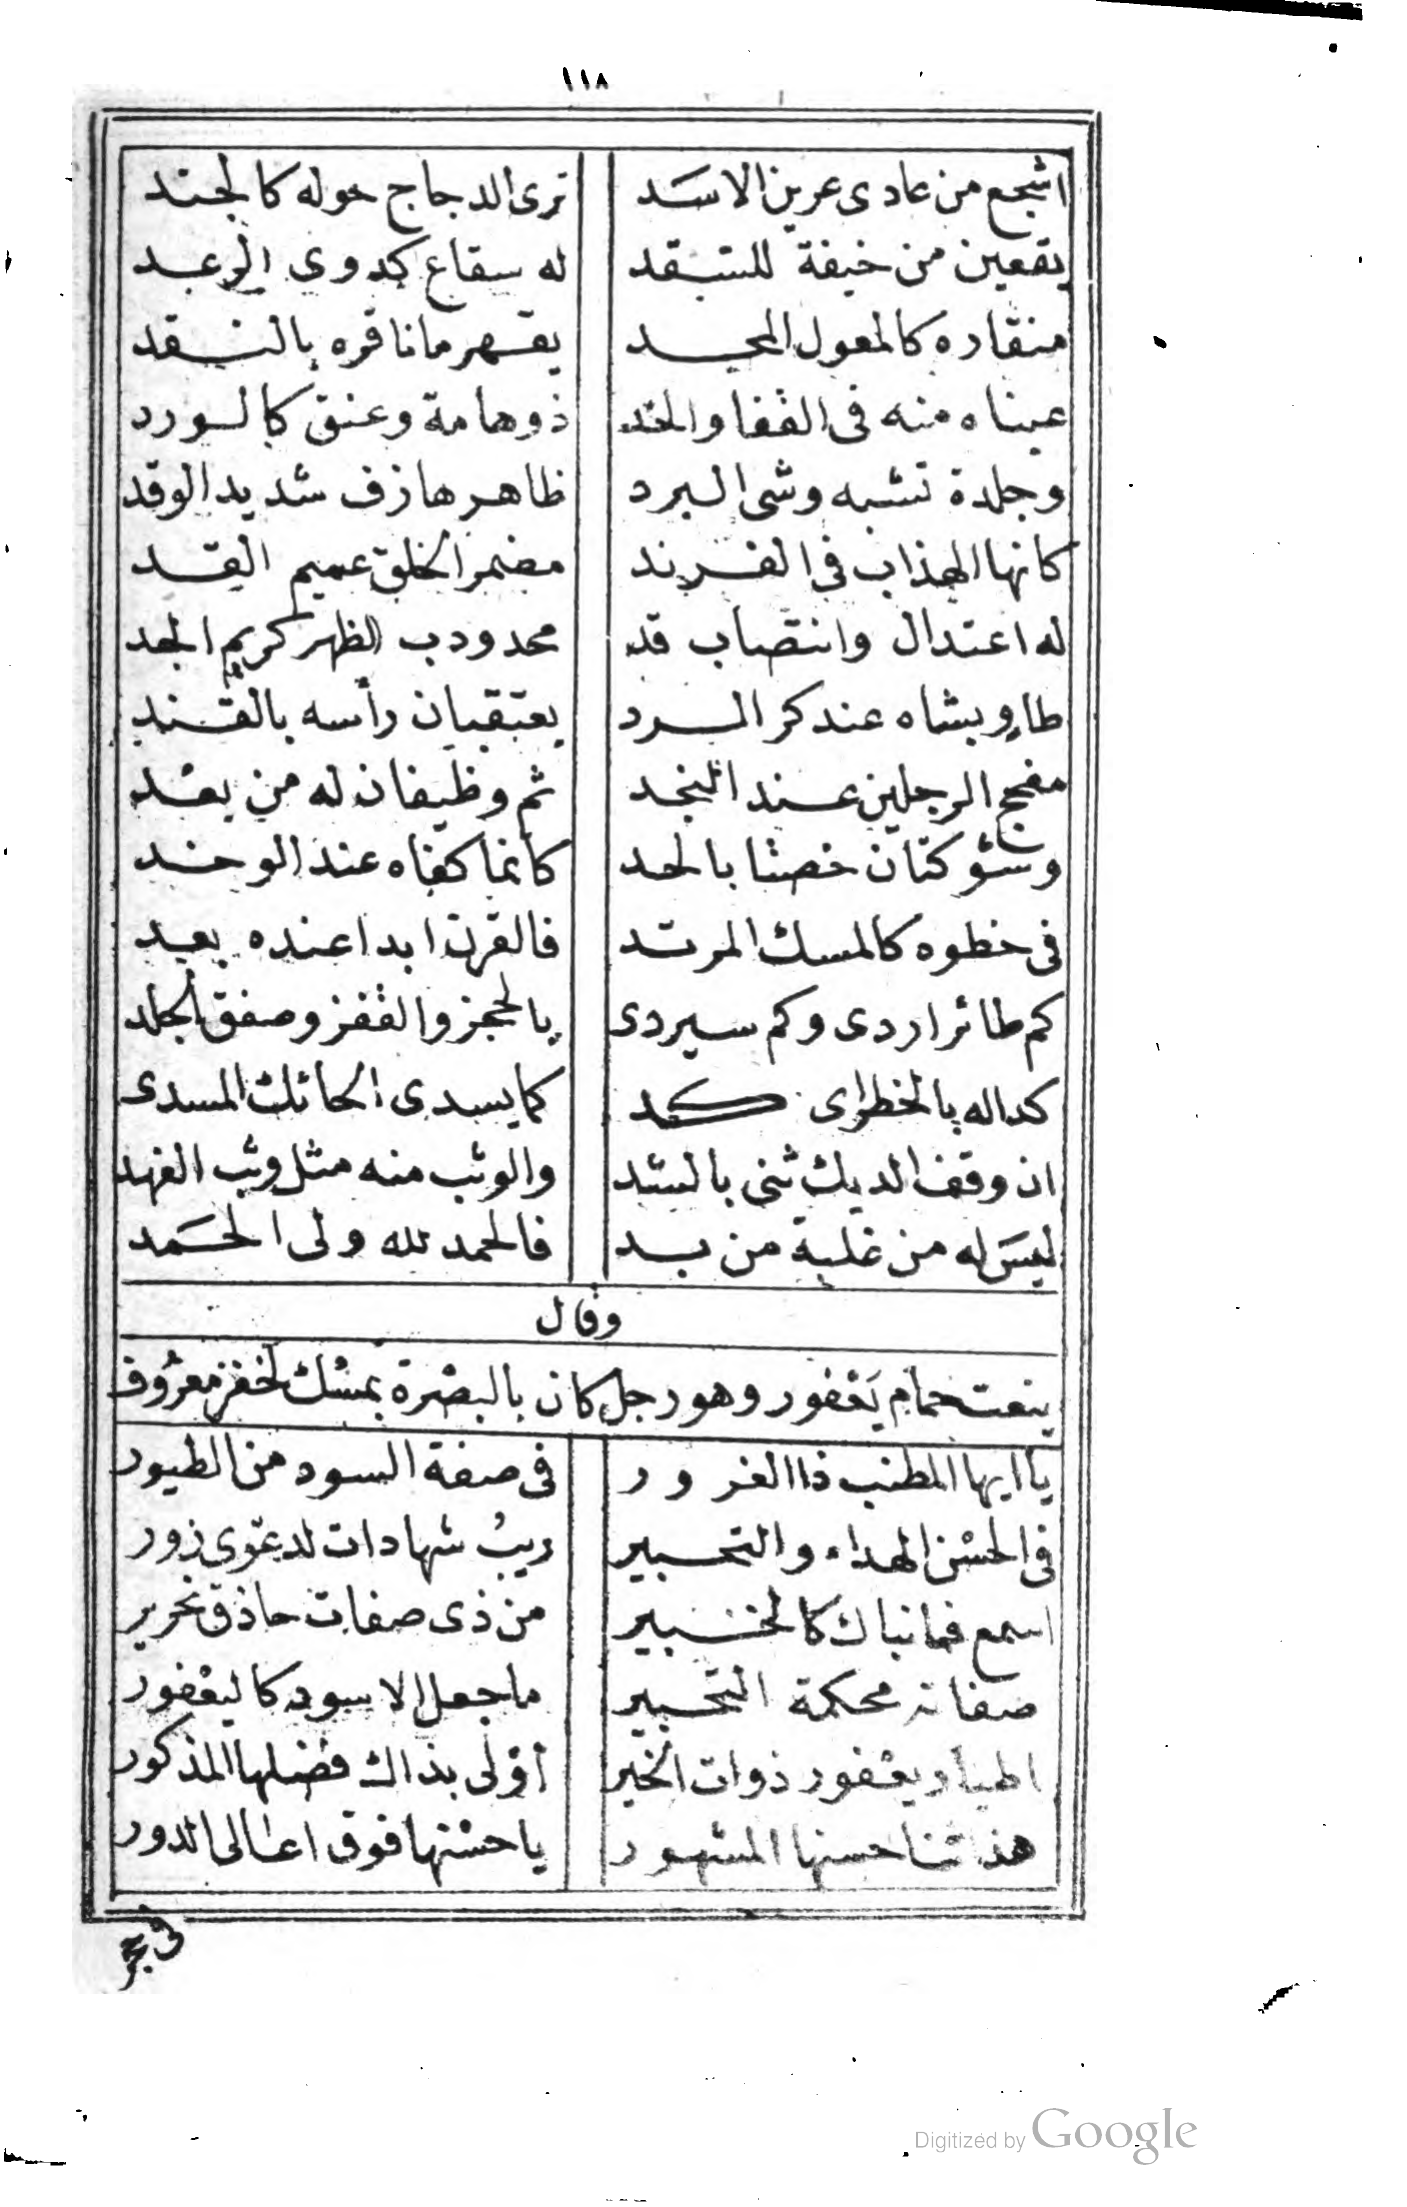 ١١٨
اشجع من عادى عرين الاسد ترى الدجاج حوله كالجند
يقعين من خيفة للسفد له سقاع كدوى الرعد
منقاره كالمعول المحد يقهر ما ناقره بالنقد
عيناه منه فى القفا والخد ذو هامة وعنق كالورد
وجلدة تشبه وشى البرد ظاهرها زف شديد الوقد
كانها الهذاب فى الفرند مضمر الخلق عميم القد
له اعتدال وانتصاب قد محدودب الظهر كريم الجد
عند كر الرد يعتقبان رأسه بالقند
مفحج الرجلين عند النجد ثم وظيفان له من بعد
وشوكتان خصتا بالحد كانما كفاه عند الوخد
فى خطوه كالمسك المرتد فالقرن ابدا عنده بعيد
كم طائر اردى وكم سيردى بالحجز والقفز وصفق الجلد
كداله بالخطراى كد كما يسدى الحائك المسدى
ان وقف الديك ثنى بالشد والوثب منه مثل وثب الفهد
ليس له من غلبة من بد فالحمد لله ولى الحمد
وقال
ينعت حمام يعفور وهو رجل كان بالبصرة يمسك لخفز معروف
يا ايها المطنب ذا الغرور فى صفة السود من الطيور
فى الحسن الهداء والتحسير ريب شهادات لدعوى زور
اسمع فما نباك كالخبير من ذى صفات حاذق نحرير
صفاته محكمة التحبير ما جعل الاسود كاليعفور
يعفور ذوات الخير أولى بذاك فضلها المذكور
هذا ثنا حسنها المشهور يا حسنها فوق اعالى الدور
فى بحر
Digitized by Google